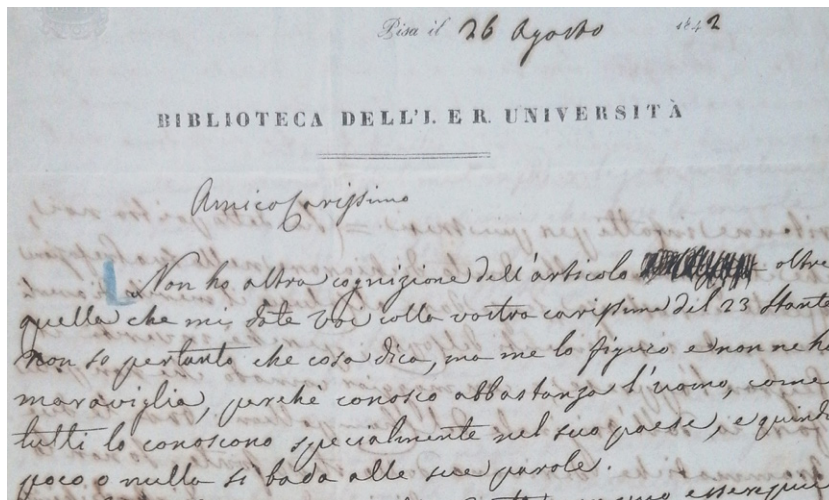 Pisa il 26 Agosto 1842
BIBLIOTECA DELL'I. E R. UNIVERSITÀ
Amico Carissimo
Non ho altra cognizione dell'articolo oltre
quella che mi date Voi colla vostra carissima del 23 Stante
non so pertanto che cosa dica, ma me lo figuro e non ne ho
maraviglia, perchè conosco abbastanza l'uomo, come
tutti lo conoscono specialmente nel suo paese, e quindi
poco o nulla si bada alle sue parole.